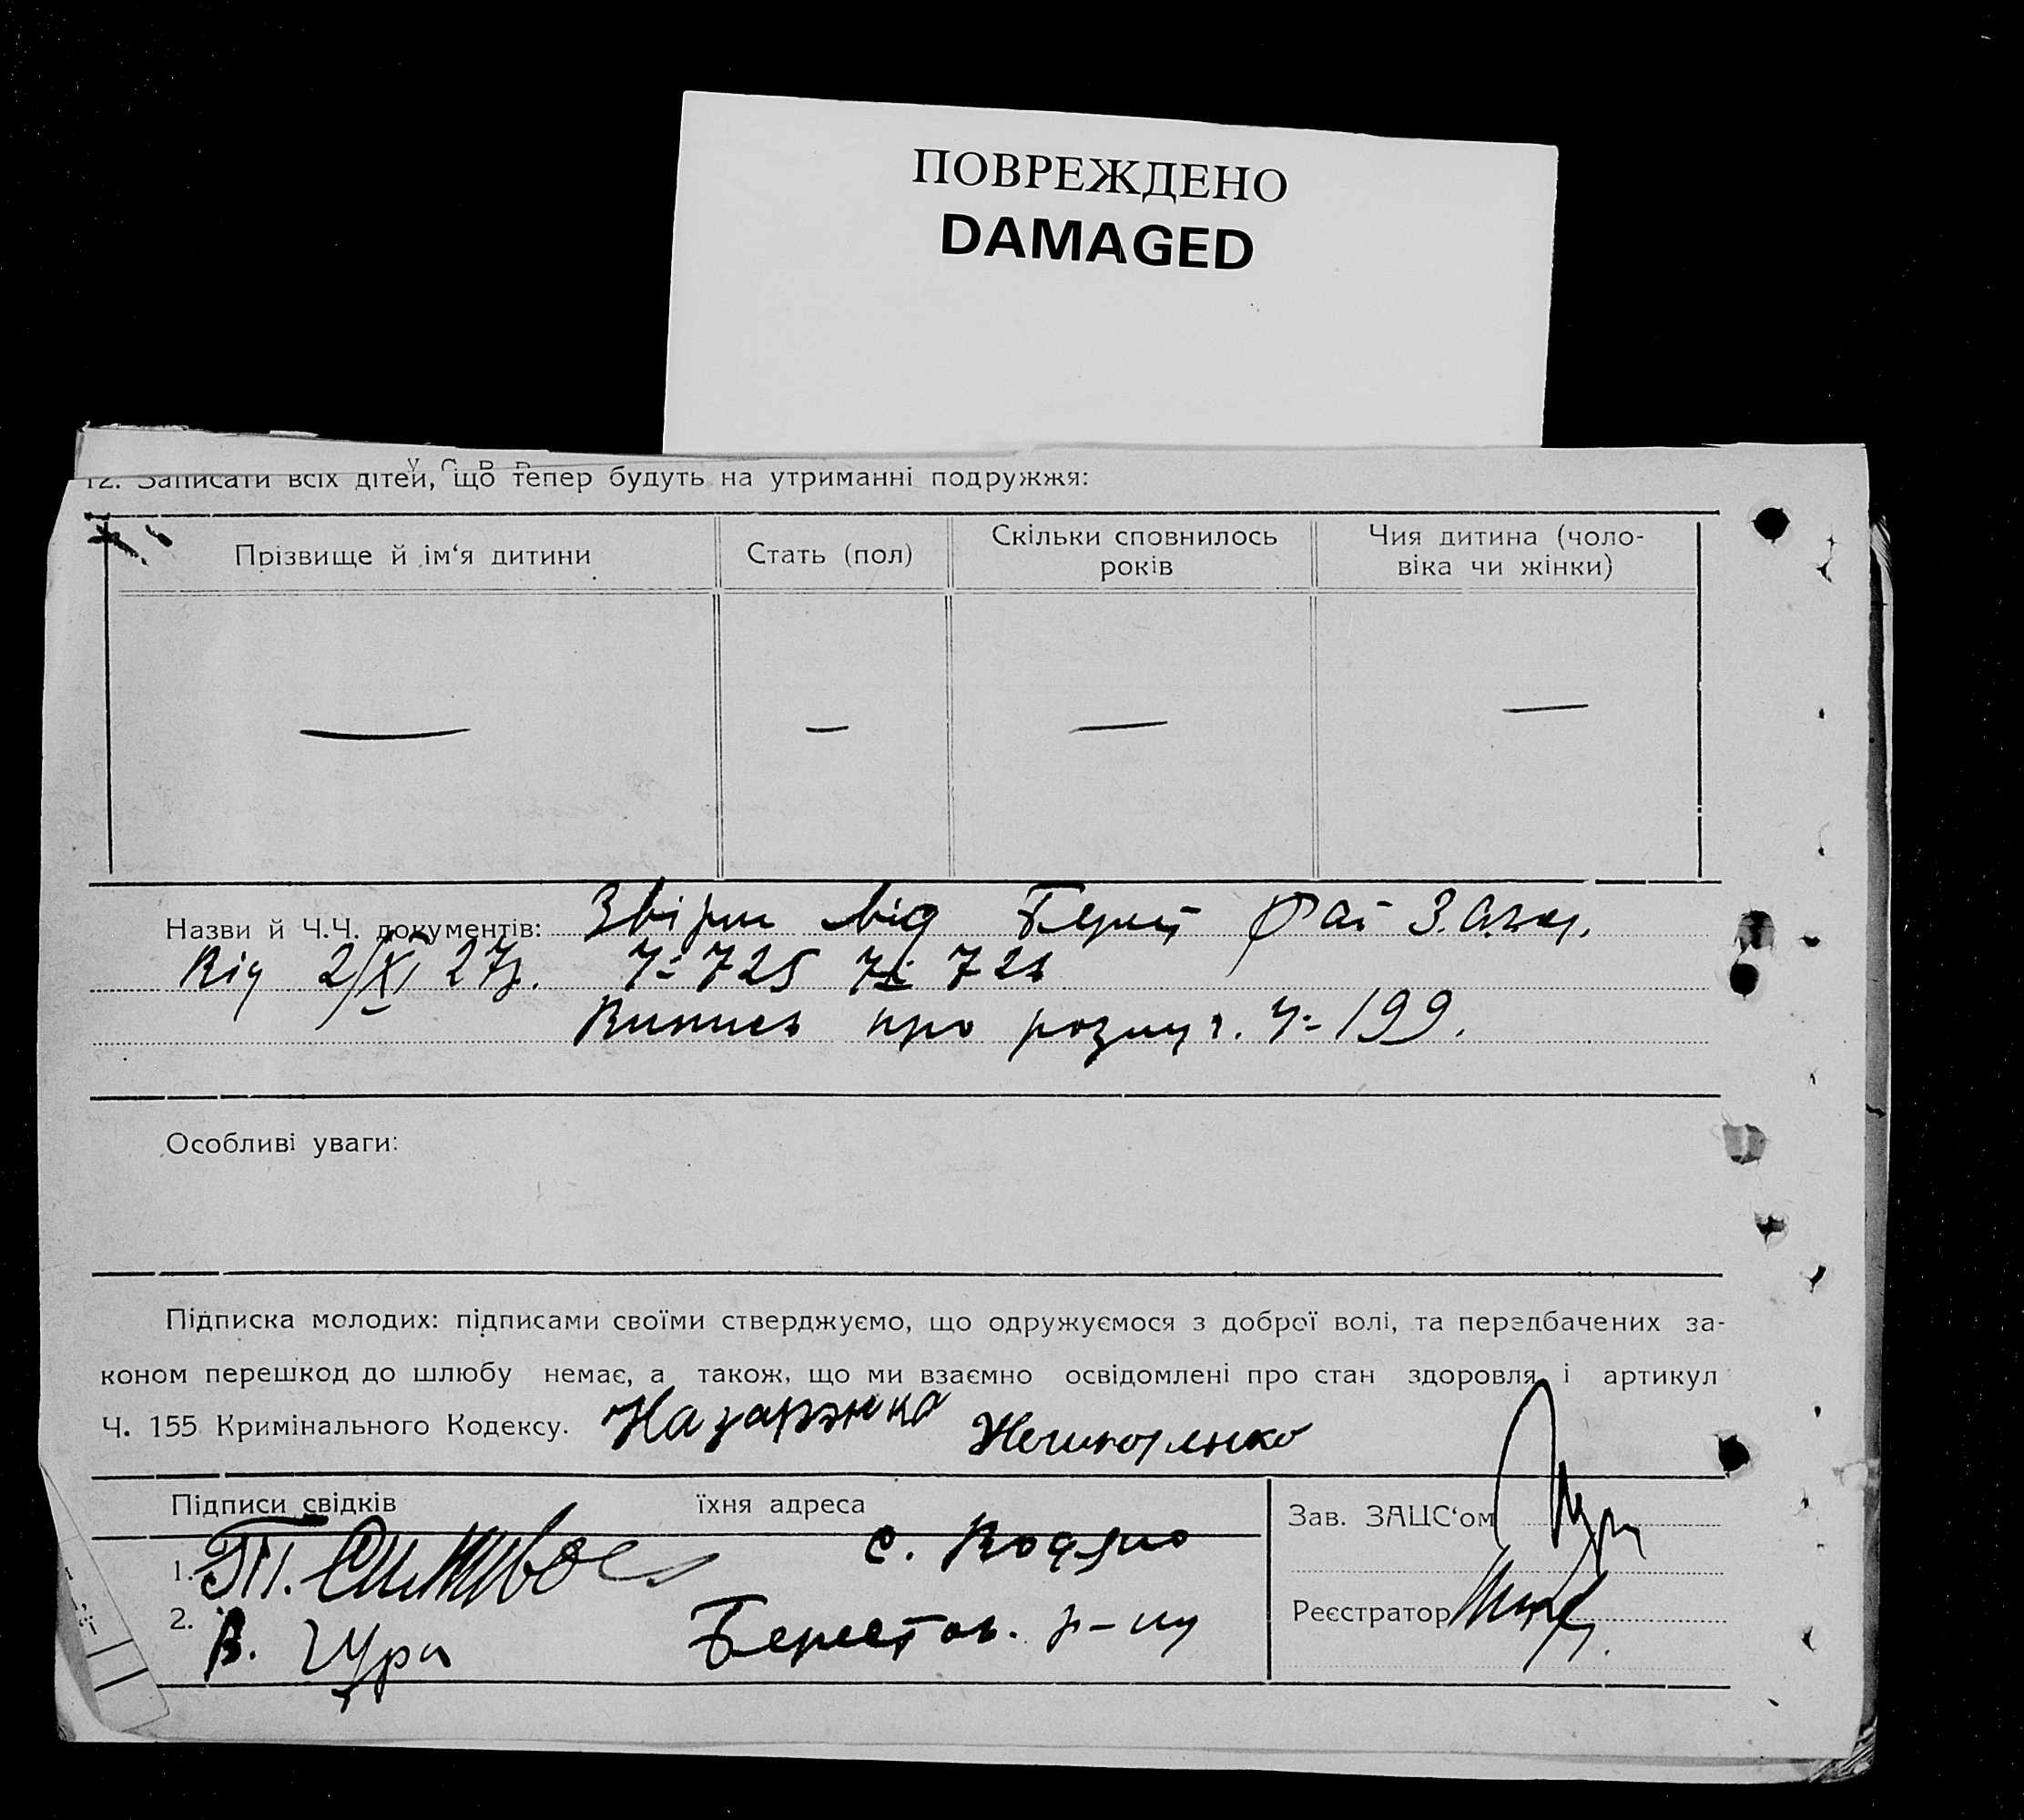 ПОВРЕЖДЕНО
DAMAGED
12. Записати всіх дітей, що тепер будуть на утриманні подружжя:
Прізвище й ім‘я дитини
Стать (пол)
Скільки сповнилось
років
Чия дитина (чоло-
віка чи жінки)
— — — —
Назви й Ч.Ч. документів: від
Від 2/XI 27р. Ч- 725
Випись про розлуч. Ч- 199.
Особливі уваги:
Підписка молодих: підписами своїми стверджуємо, що одружуємося з доброї волі, та передбачених за-
коном перешкод до шлюбу немає, а також, що ми взаємно освідомлені про стан здоровля і артикул
Ч. 155 Кримінального Кодексу.
Підписи свідків їхня адреса
Зав. ЗАЦС‘ом
1. с.
2. В. Берестов. р-ну
Реєстратор